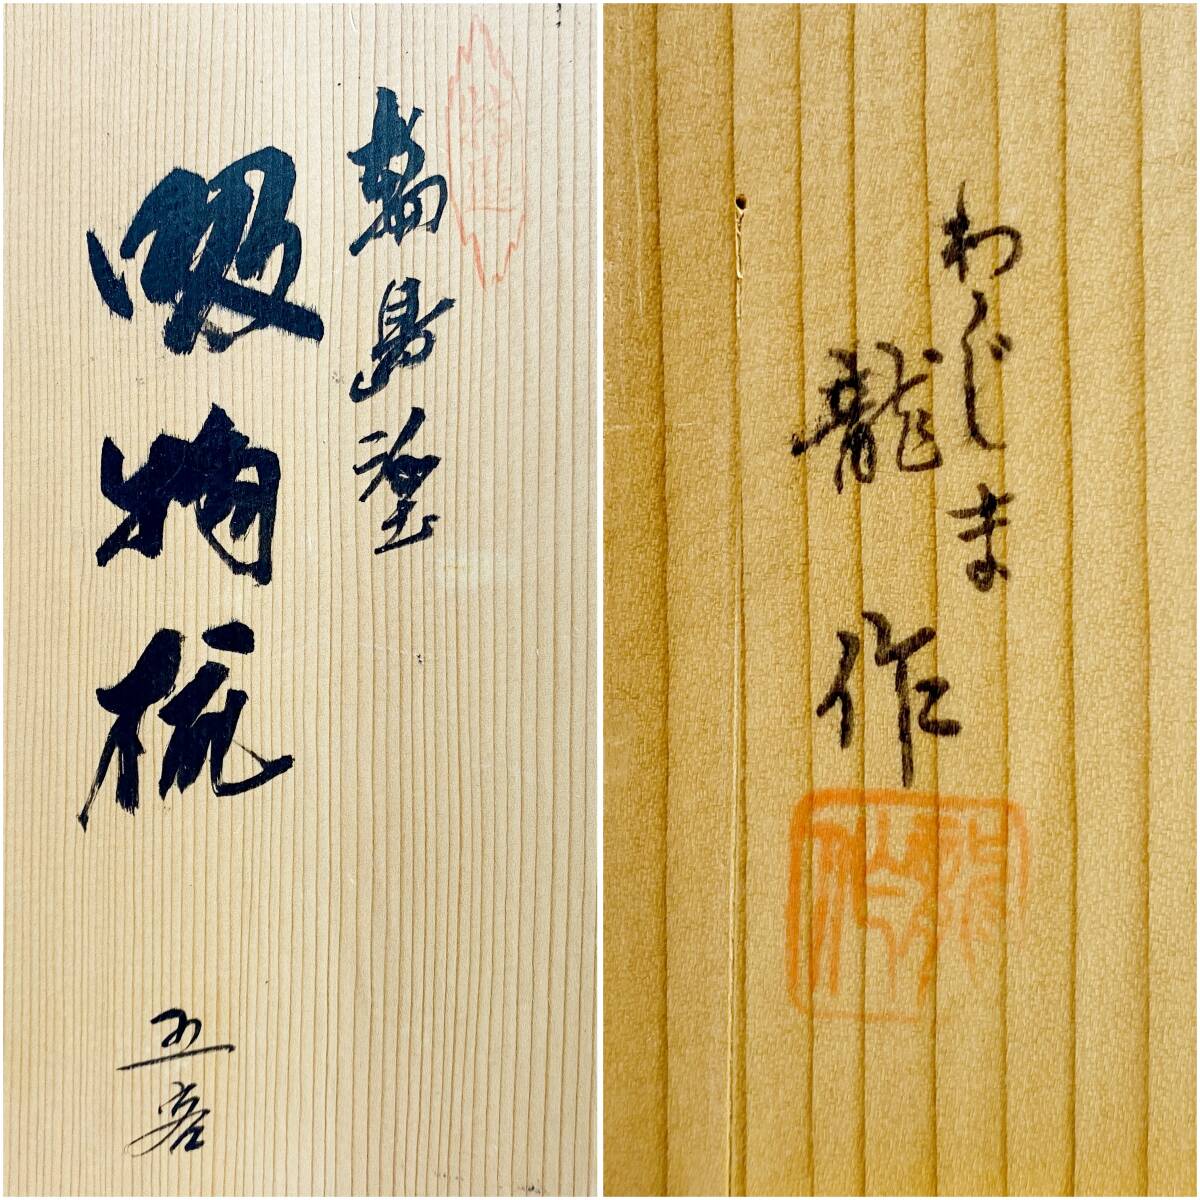 輪島塗
吸物椀
五客
わじま
龍作